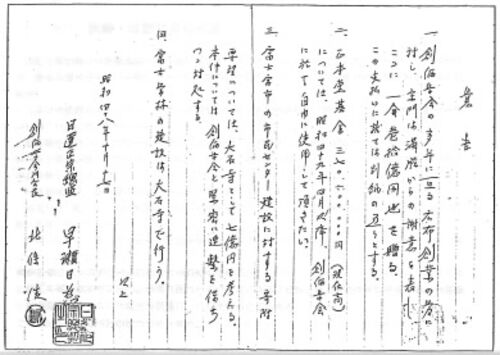 覚書
一、創価学会の多年に亘る広布創業の為に
対し、宗門は満腔からの謝意を表す
ここに一金壱拾億円也を贈る。
この支払いに就ては別紙の通りとする。
二、正本堂基金 三七〇、六〇〇、〇〇〇円(現在高)
については、昭和四十九年四月以降、創価学会
に於て自由に使用して頂きたい。
三、富士宮市の市民センター建設に対する寄附
要望については、大石寺として七億円を考える。
本件については創価学会と緊密に連繋を保ち
つつ対処する。
四、富士学林の建設は大石寺で行う。
以上
昭和四八年十月十七日
日蓮正宗総監 早瀬日慈
創価学会 北條浩